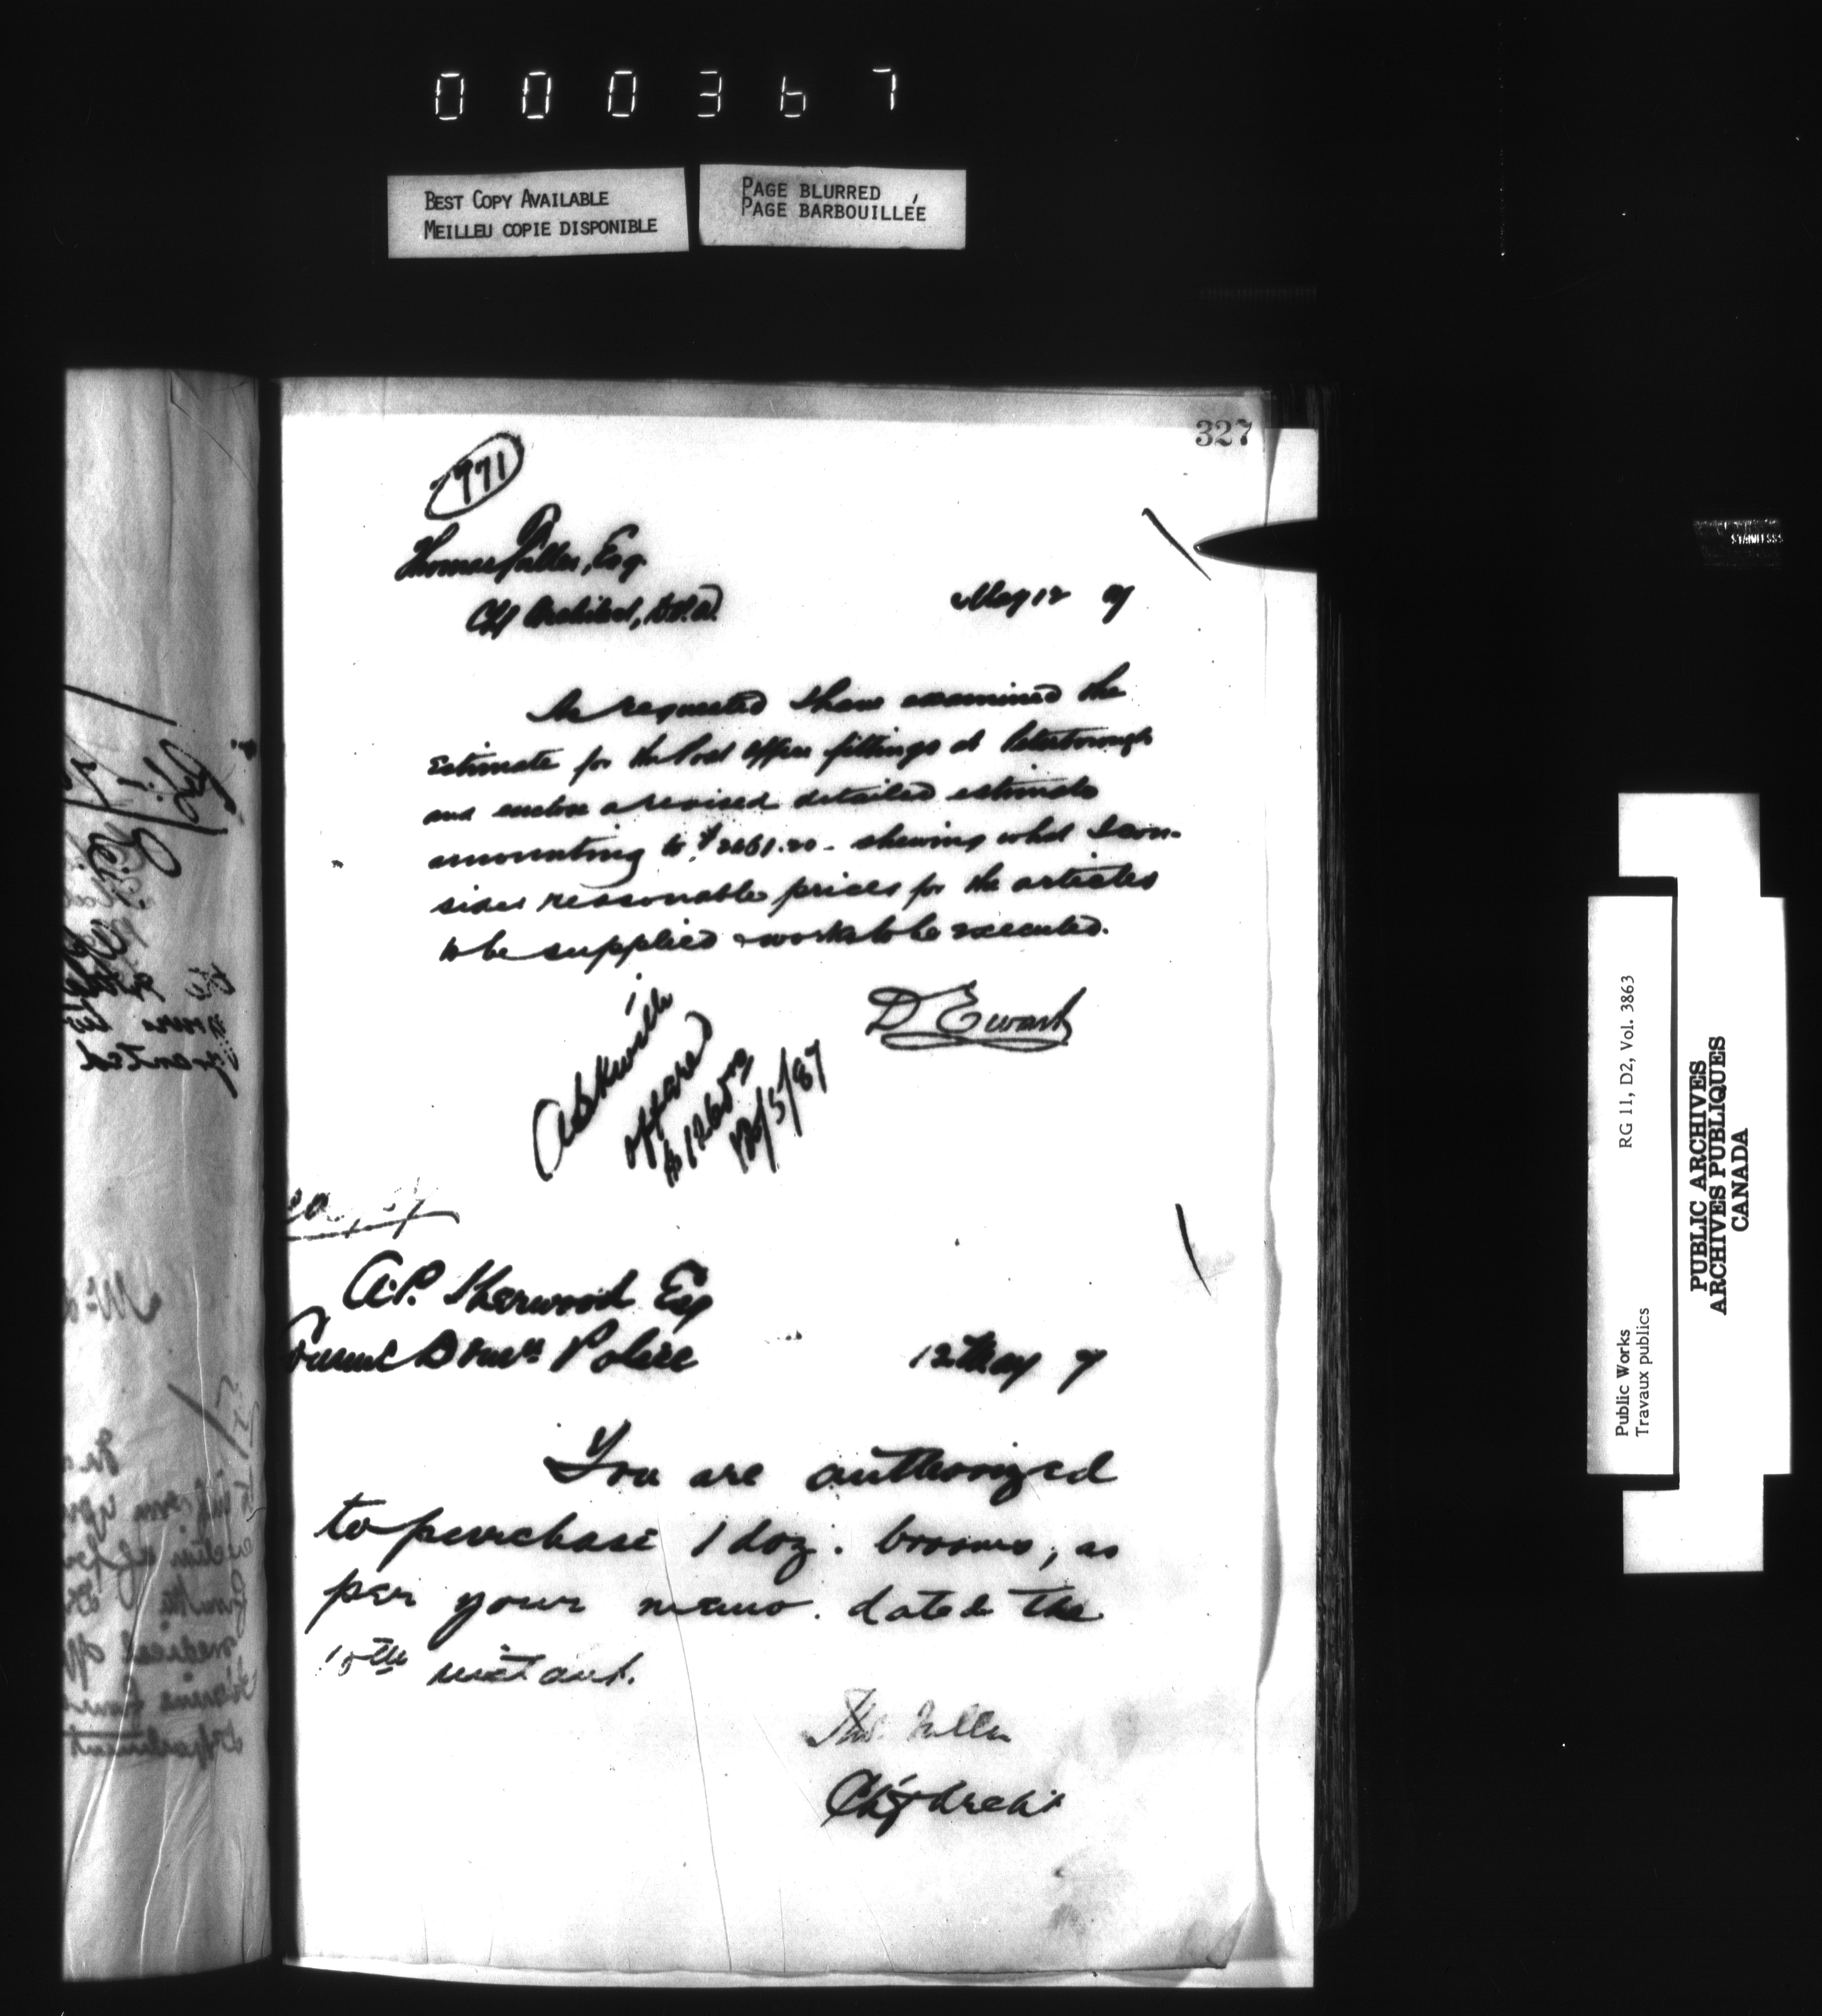 000367
BEST COPY AVAILABLE
MEILLEU COPIE DISPONIBLE
PAGE BLURRED
PAGE BARBOUILLÉE
327
971
Thomas Fuller, Esq.
Chf Architect, D.P.W.
May 12 87
As requested I have examined the
Estimate for the Post Office fittings at Peterborough
and enclose a revised detailed estimate
amounting to $ - shewing what I con-
sider reasonable prices for the articles
to be supplied & works to be executed.
D Ewart
Askwith
offered
12/5/87
A.P. Sherwood Esq
Police
12 May 7
You are authorized
to purchase 1 doz. brooms, as
per your memo. dated the
10th instant.
Thos. Fuller
Chf Archt
RG 11, D2, Vol. 3863
Public Works
Travaux publics
PUBLIC ARCHIVES
ARCHIVES PUBLIQUES
CANADA